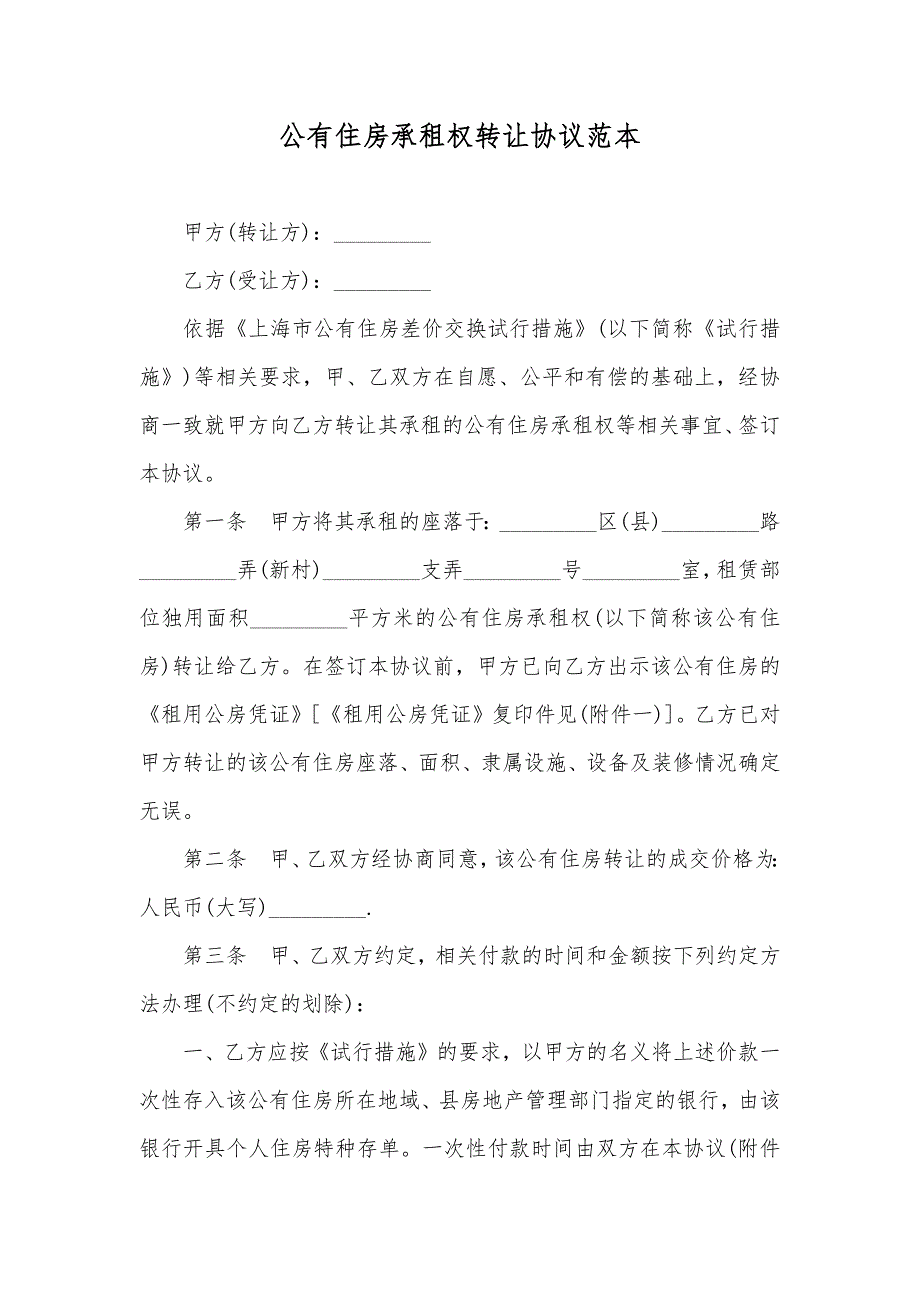 公有住房承租权转让协议范本
甲方(转让方)：_________
乙方(受让方)：_________
依据《上海市公有住房差价交换试行措施》(以下简称《试行措
施》)等相关要求，甲、乙双方在自愿、公平和有偿的基础上，经协
商一致就甲方向乙方转让其承租的公有住房承租权等相关事宜、签订
本协议。
第一条　甲方将其承租的座落于：_________区(县)_________路
_________弄(新村)_________支弄_________号_________室，租赁部
位独用面积_________平方米的公有住房承租权(以下简称该公有住
房)转让给乙方。在签订本协议前，甲方已向乙方出示该公有住房的
《租用公房凭证》[《租用公房凭证》复印件见(附件一)]。乙方已对
甲方转让的该公有住房座落、面积、隶属设施、设备及装修情况确定
无误。
第二条　甲、乙双方经协商同意，该公有住房转让的成交价格为：
人民币(大写)_________.
第三条　甲、乙双方约定，相关付款的时间和金额按下列约定方
法办理(不约定的划除)：
一、乙方应按《试行措施》的要求，以甲方的名义将上述价款一
次性存入该公有住房所在地域、县房地产管理部门指定的银行，由该
银行开具个人住房特种存单。一次性付款时间由双方在本协议(附件